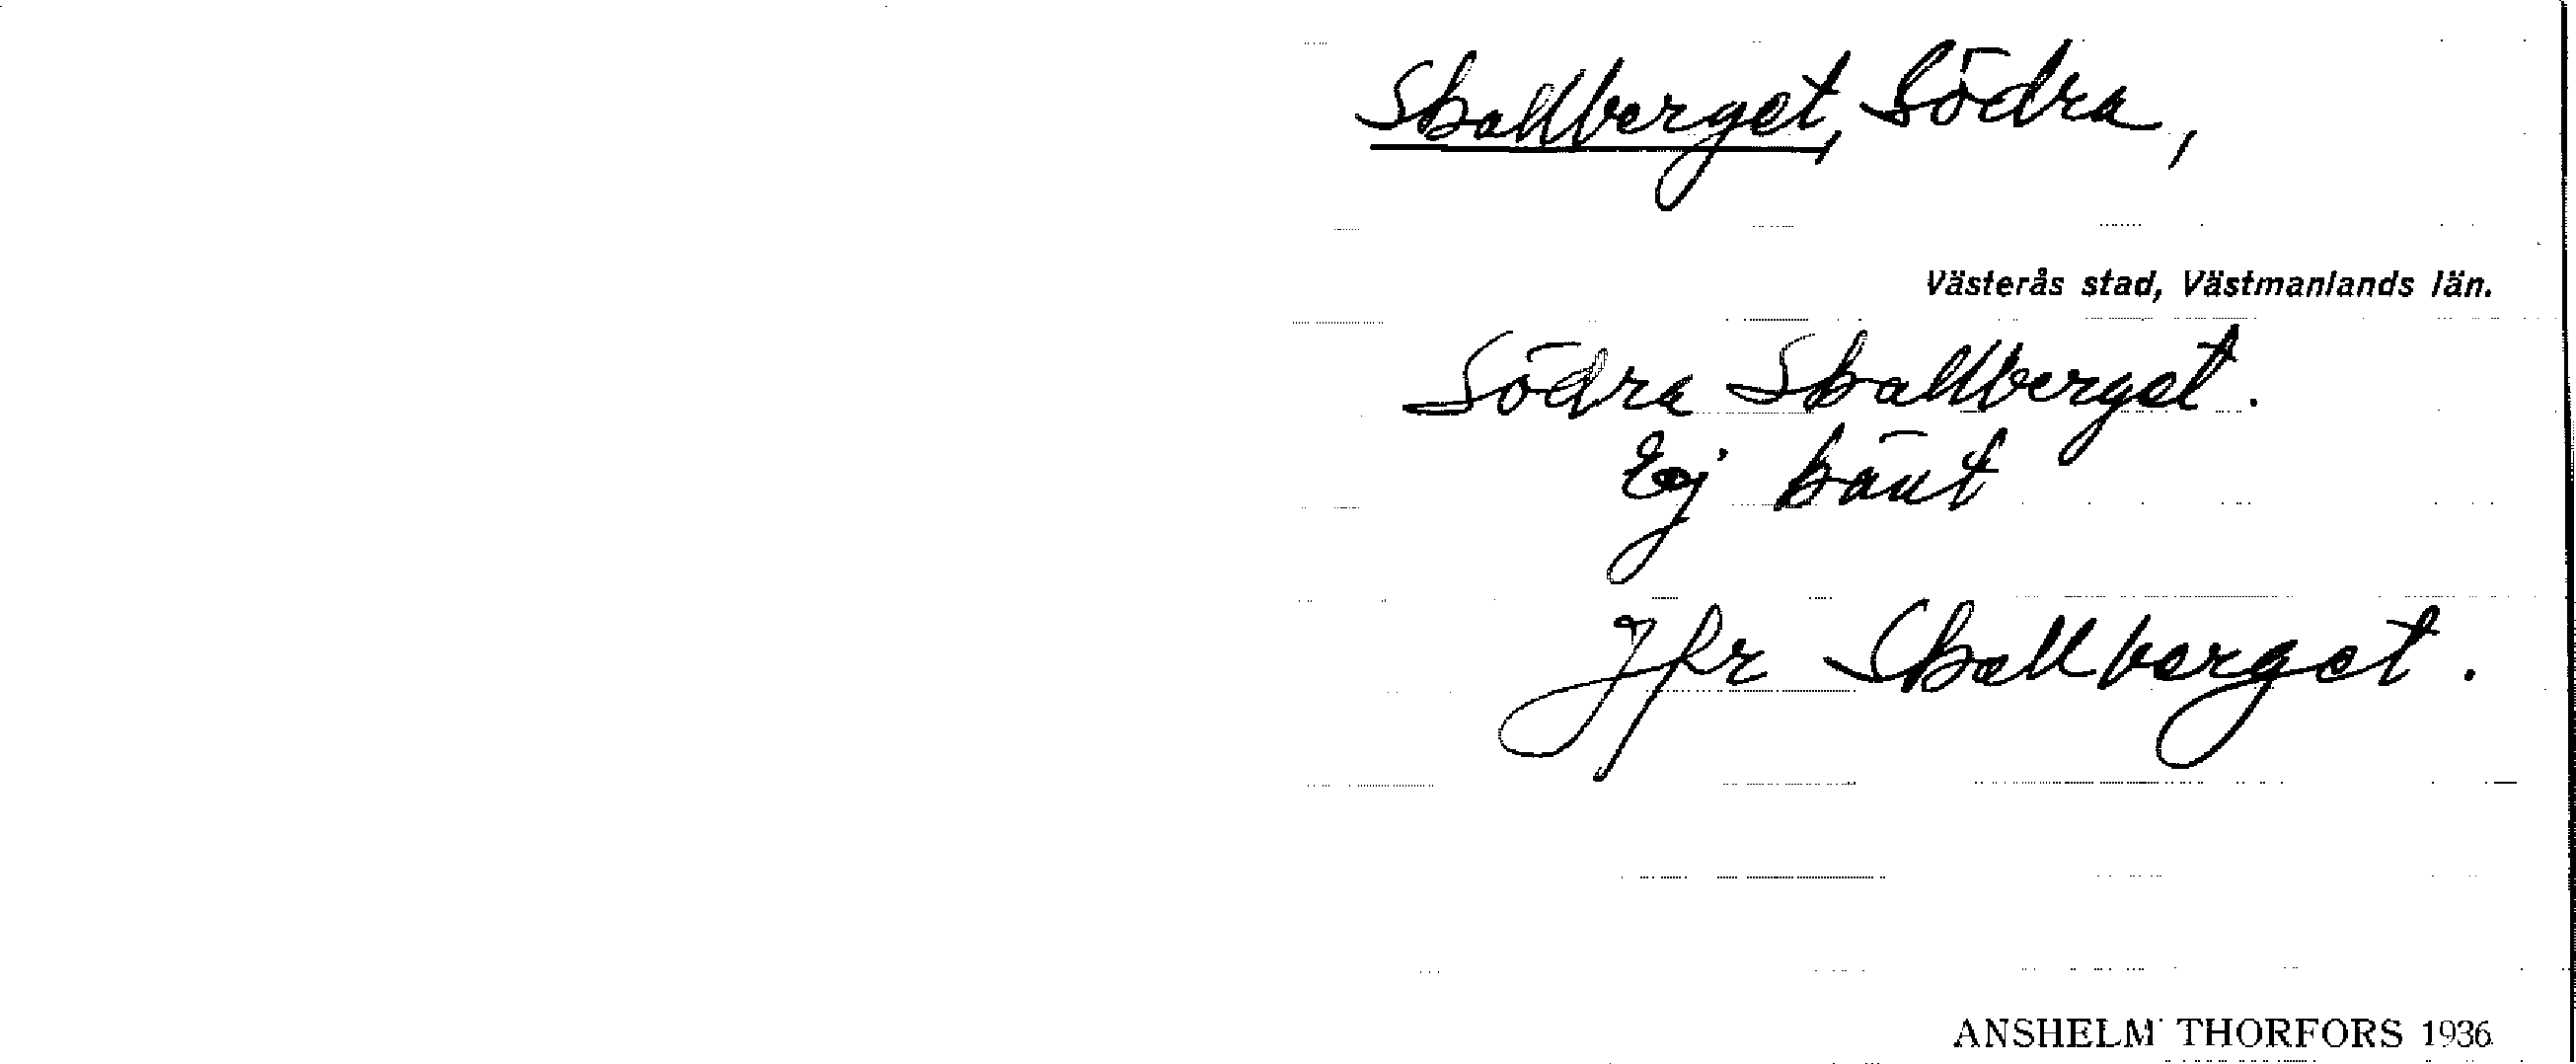 Skallberget, Södra,
Västerås stad, Västmanlands län.
Södra Skallberget.
Ej känt
Jfr Skallberget.
ANSHELM THORFORS 1936